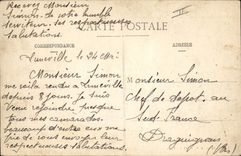 Recevez Monsieur
Simon de votre humble
serviteur ses respectueuses
salutations
CARTE POSTALE
CORRESPONDANCE
ADRESSE
Lunéville le 24
Monsieur Simon
me voilà rendu à Lunéville
depuis 8 jours je suis
Vous rejoindre presque
tous mes camarades
beaucoup d'entre eux me
de vous envoyer leur
respectueuses salutations
Monsieur Simon
Chef de dépot au
Sud France
Draguignan
(Var)